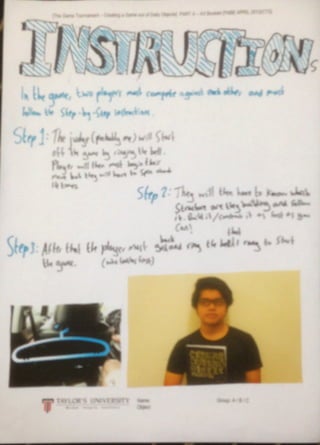 (The Game Tournament - Creating a Game out of Daily Objects) PART A - A4 Booklet
INSTRUCTIONs
In the game, two players must compete against each other and must
follow the Step-by-Step instructions.
Step 1: The judge (probably me) will Start
off the game by ringing the bell.
Player will then must begin their
but they will have to spin around
10 times.
Step 2: They will then have to Know which
Structure are they building and follow
it. Build it/ it as fast as you
Can!
Step 3: After that the player must go back and ring the bell that I rang to Start
the game.
TAYLOR'S UNIVERSITY
Name:
Object: